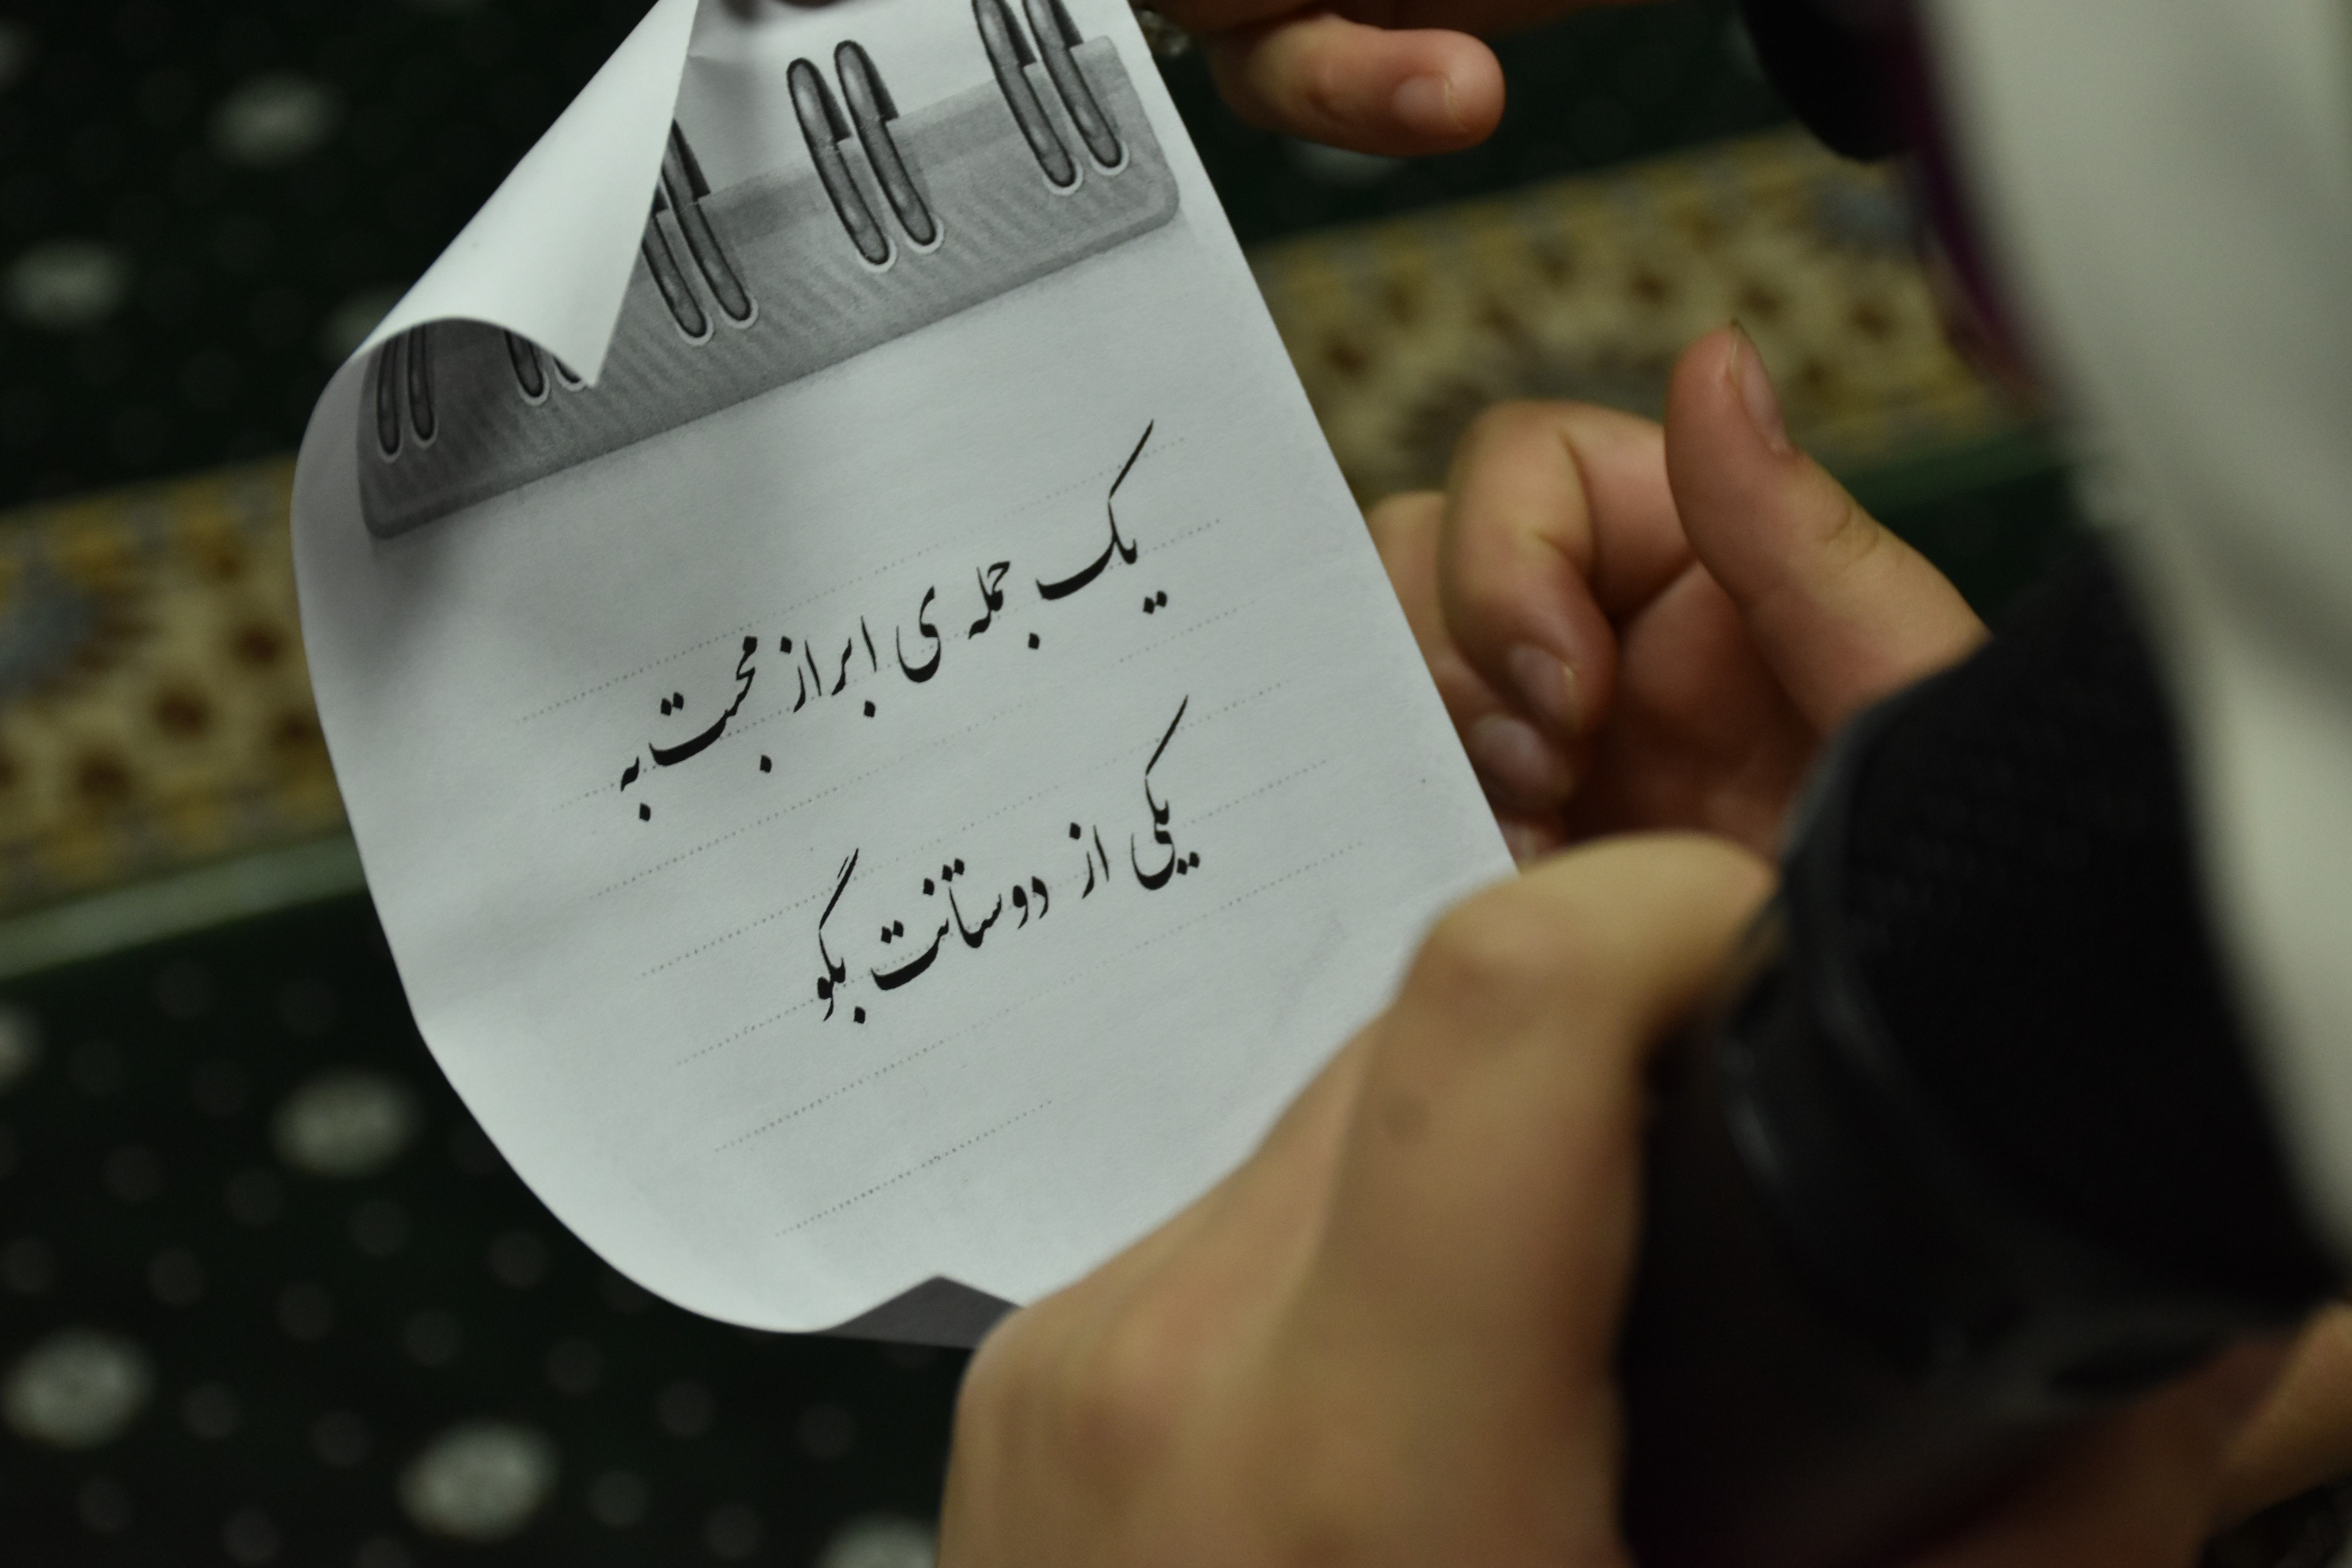 یک جمله ی ابراز محبت به
یکی از دوستانت بگو